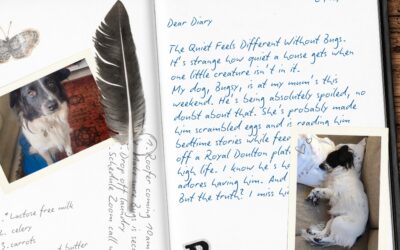 Dear Diary
The Quiet Feels Different Without Bugs.
It's strange how quiet a house gets when
one little creature isn't in it.
My dog, Bugsy, is at my mum's this
weekend. He's being absolutely spoiled, no
doubt about that. She's probably made
him scrambled eggs and is reading him
bedtime stories while feed
off a Royal Doulton plat
high life. I know he's h
adores having him. And
But the truth? I miss hi
Roofer coming 10am
Drop off laundry
Schedule Zoom call
* Lactose free milk
celery
3. carrots
and butter